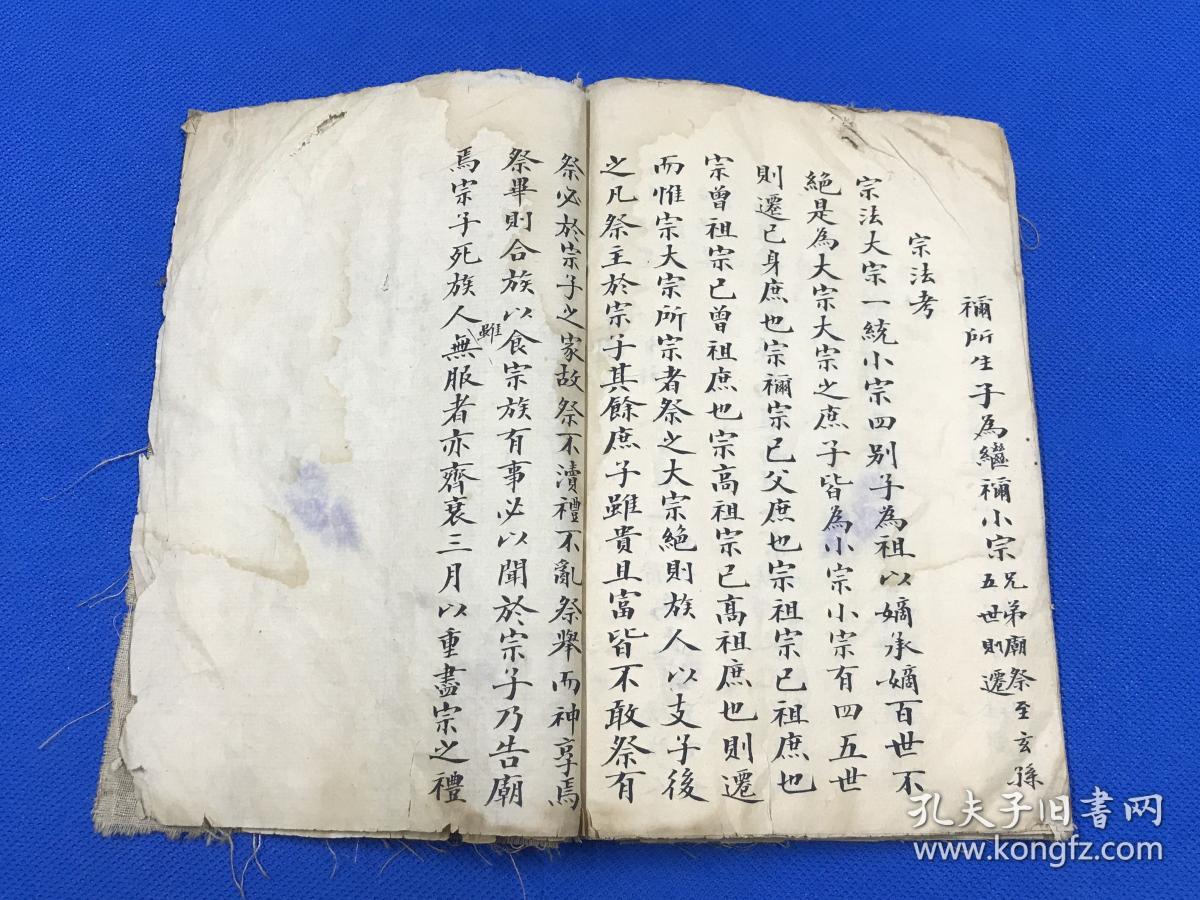 禰所生子為繼禰小宗兄弟廟祭至玄孫
五世則遷
宗法考
宗法大宗一統小宗四别子為祖以嫡承嫡百世不
絕是為大宗大宗之庶子皆為小宗小宗有四五世
則遷已身庶也宗禰宗已父庶也宗祖宗已祖庶也
宗曾祖宗已曾祖庶也宗高祖宗已髙祖庶也則遷
而惟宗大宗所宗者祭之大宗絕則族人以支子後
之凡祭主於宗子其餘庶子雖貴且富皆不敢祭有
祭必於宗子之家故祭不瀆禮不亂祭舉而神享焉
祭畢則合族以食宗族有事必以聞於宗子乃告廟
焉宗子死族人雖無服者亦齊衰三月以重盡宗之禮
孔夫子旧書网
www.kongfz.com